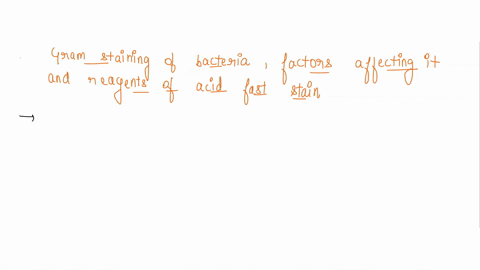 Gram staining of bacteria, factors affecting it
and reagents of acid fast stain
→